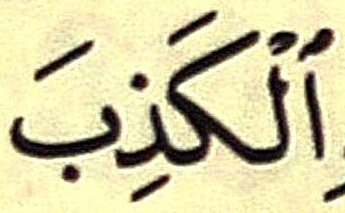 ٱلْكَذِبَ